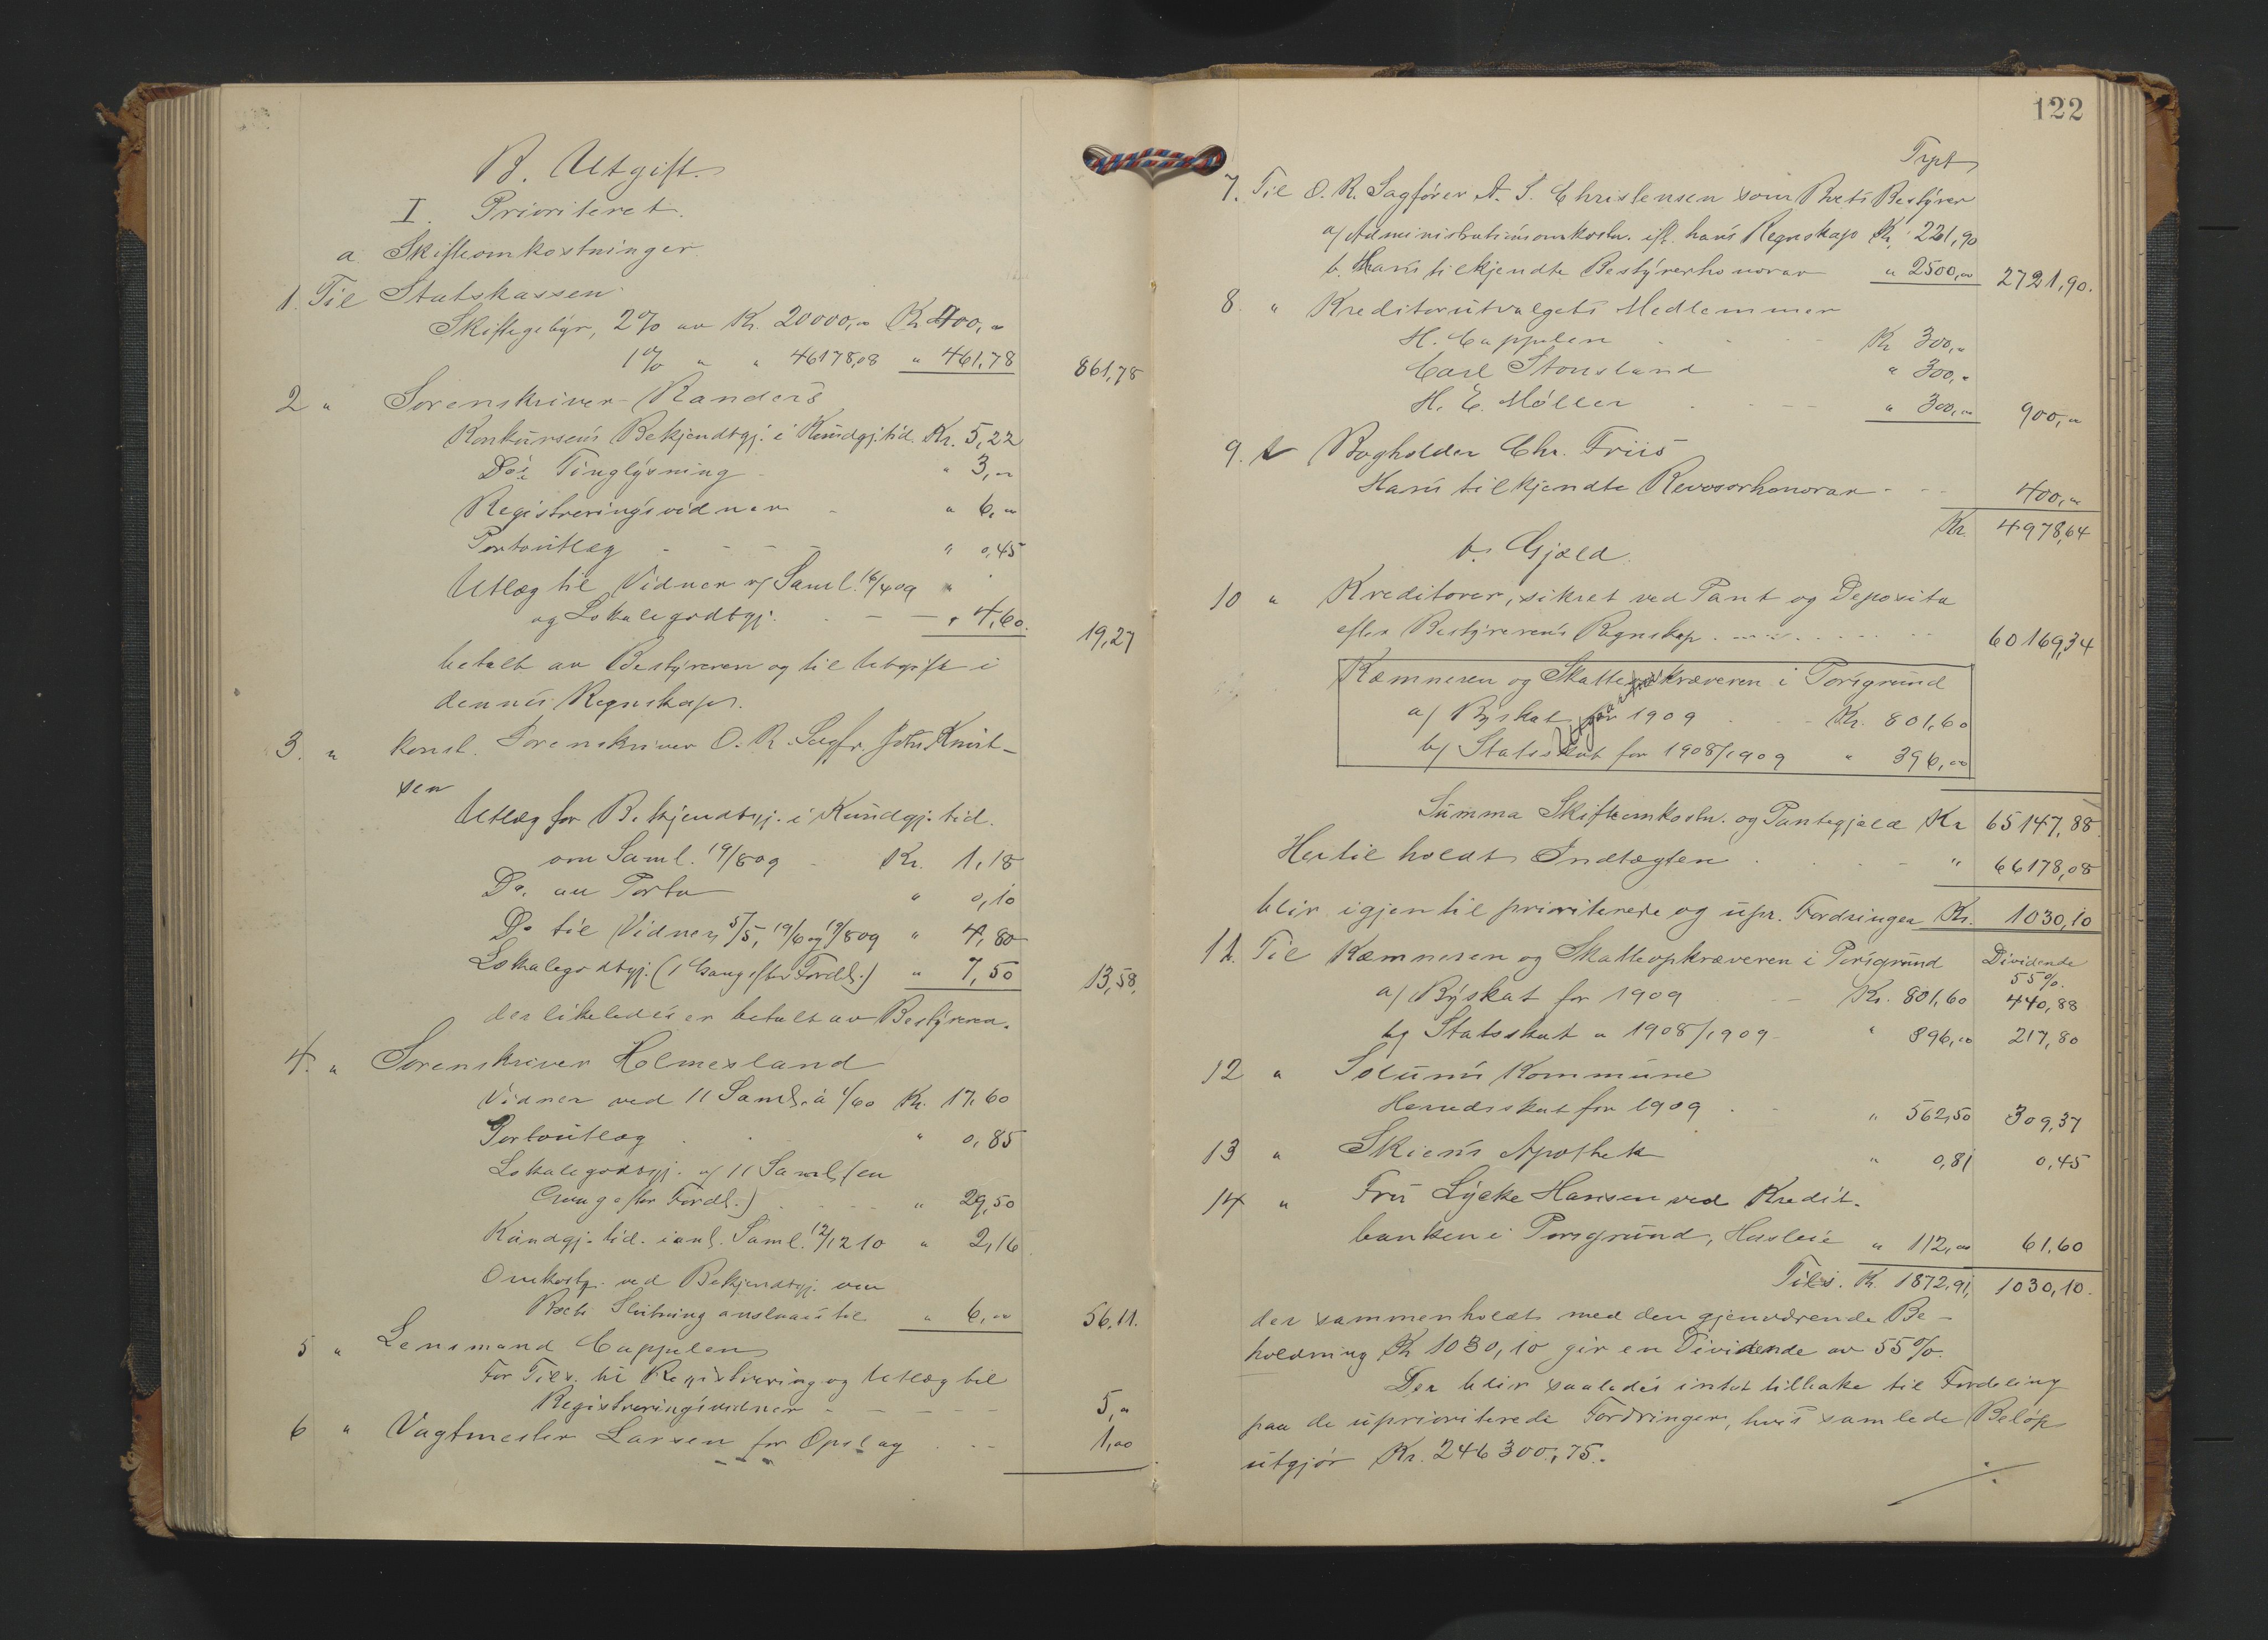 B. Utgift.
I. Prioriteret.
a. Skifteomkostninger.
1. Til Statskassen
Skiftegebyr, 2% av Kr. 20000,00 Kr. 400,00
1% " " 46178,08 " 461,78 861,78
2 " Sorenskriver Randers
Konkursens Bekjendtgj. i Kundgj.tid. Kr. 5,22
Do's Tinglysning " 3,00
Registreringsvidner " 6,00
Portoutlæg " 0,45
Utlæg til Vidner v/ Saml. 16/4 09 "
og Lokalegodtgj. " 4,60. 19,27
betalt av Bestyreren og til Utgift i
dennes Regnskap.
3. " Konst. Sorenskriver O. R. Sagfr. Johs Knut-
sen
Utlæg for Bekjendtgj. i Kundgj.tid.
om Saml. 19/8 09 Kr. 1,18
Do. au Porto " 0,10
Do til Vidner 5/5, 19/6 og 19/8 09 " 4,80
Lokalegodtgj. (1 Gang efter Fordl.) " 7,50 13,58,
der likeledes er betalt av Bestyreren.
4. " Sorenskriver Holmesland
Vidner ved 11 Saml. à 1/60 Kr. 17,60
Portoutlæg " 0,85
Lokalegodtgj. v/ 11 Saml. (en
Gang efter Fordl.) " 29,50
Kundgj. tid. i anl. Saml. 12/12 10 " 2,16
Omkostn. ved Bekjendtgj. om
Boets Slutning anslaaes til " 6,00 56,11.
5 " Lensmand Cappelen
For Tilst. til Registrering og Utlæg til
Registreringsvidner 5,00
6 " Vagtmester Larsen for Opslag 1,00
122
Trpt
7. Til O. R. Sagfører A. S. Christensen som Boets Bestyrer
a/ Administrationsomkostn. ifl. hans Regnskap Kr. 221,90
b. Hans tilkjendte Bestyrerhonorar " 2500,00 2721,90.
8. " Kreditorutvalgets Medlemmer
H. Cappelen Kr 300,00
Carl Stousland " 300,00
H. E. Møller " 300,00 900,00
9. " Bogholder Chr. Friis
Hans tilkjendte Revisorhonorar 400,00
Kr. 4978,64
b. Gjæld.
10 " Kreditorer, sikret ved Pant og Deposita
efter Bestyrerens Regnskap 60169,34
Kæmneren og Skatteopkræveren i Porsgrund
a/ Byskat for 1909 Kr. 801,60
b/ Statsskat for 1908/1909 " 396,00
Utgaar
Summa Skifteomkostn. og Pantegjæld Kr 65147,88
Hertil holdt Indtægten " 66178,08
blir igjen til prioriterede og upr. Fordringer Kr. 1030,10
11. Til Kæmneren og Skatteopkræveren i Porsgrund Dividende
55%.
a/ Byskat for 1909 Kr. 801,60 440,88
b/ Statsskat " 1908/1909 " 396,00 217,80
12 " Solums Kommune
Herredsskat for 1909 " 562,50 309,37
13 " Skiens Apothek " 0,81 0,45
14 " Fru Lycke Hansen ved Kredit-
banken i Porsgrund, Husleie " 112,00 61,60
Tils. Kr. 1872,91, 1030,10.
der sammenholdt med den gjenværende Be-
holdning Kr 1030,10 gir en Dividende av 55%.
Der blir saaledes intet tilbake til Fordeling
paa de uprioriterede Fordringer, hvis samlede Beløp
utgjør Kr. 246300,75.